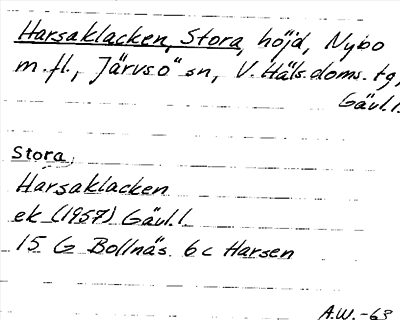 Harsaklacken, Stora, höjd, Nybo
m.fl., Järvsö sn, V. Häls. doms. tg,
Gävl.l.
Stora
Harsaklacken
ek (1957) Gävl.l.
15 G Bollnäs 6c Harsen
A.W.-63